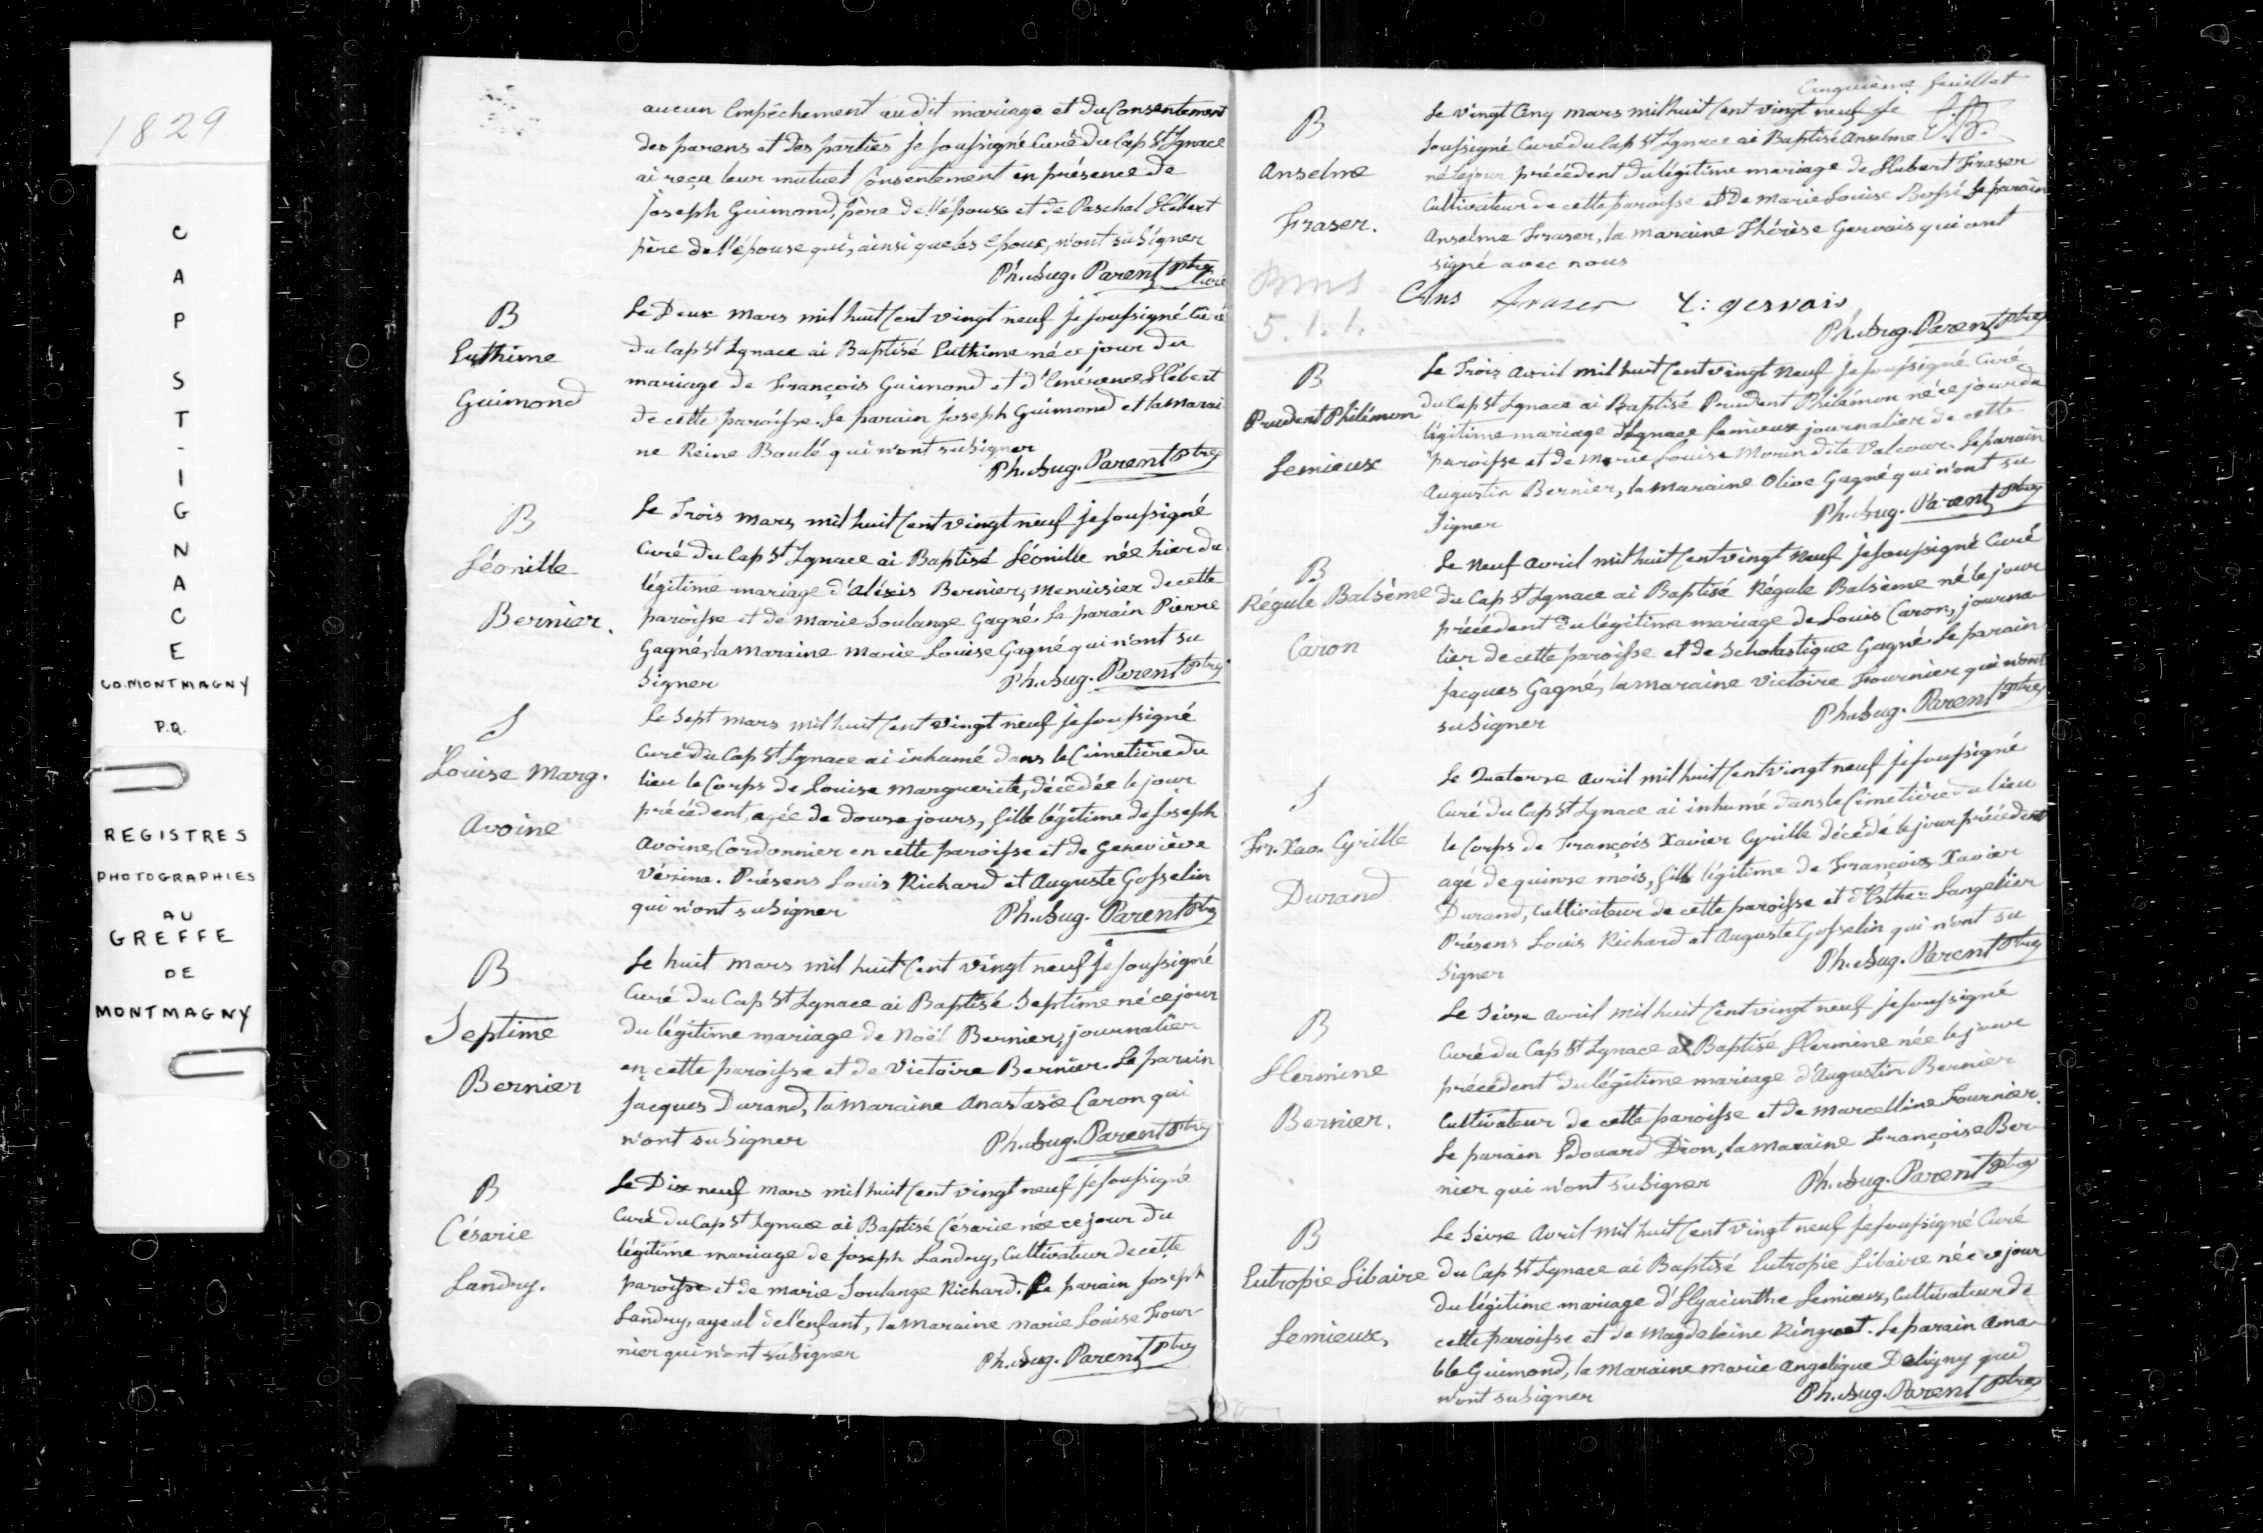 1829
C
A
P
S
T
-
I
G
N
A
C
E
CO. MONTMAGNY
P.Q.
REGISTRES
PHOTOGRAPHIES
AU
GREFFE
DE
MONTMAGNY
aucun Empêchement au dit mariage et du Consentement
des parens et des parties Je soussigné Curé du Cap St Ignace
ai reçu leur mutuel Consentement en présence de
Joseph Guimond, père de l'époux et de Paschal Hébert
père de l'épouse qui, ainsi que les époux, n'ont su signer
Ph. Aug. Parent Ptre Curé
B
Euthime
Guimond
Le Deux mars mil huit Cent vingt neuf Je soussigné Curé
du Cap St Ignace ai Baptisé Euthime né ce jour du
mariage de François Guimond et d'Emérence Hébert
de cette paroisse. Le parain Joseph Guimond et la marai
ne Reine Boulé qui n'ont su signer
Ph. Aug. Parent Ptre
B
Léonille
Bernier.
Le Trois mars mil huit Cent vingt neuf je soussigné
Curé du Cap St Ignace ai Baptisé Léonille née hier du
légitime mariage d'Aléxis Bernier, menuisier de cette
paroisse et de Marie Soulange Gagné. Le parain Pierre
Gagné, la maraine Marie Louise Gagné qui n'ont su
Signer
Ph. Aug. Parent Ptre
S
Louise Marg.
Avoine
Le Sept mars mil huit Cent vingt neuf je soussigné
Curé du Cap St Ignace ai inhumé dans le Cimetière du
lieu le Corps de Louise Marguerite, décédée le jour
précédent, agée de douse jours, fille légitime de Joseph
Avoine, Cordonnier en cette paroisse et de Geneviève
Vésina. Présens Louis Richard et Auguste Gosselin
qui n'ont su signer
Ph. Aug. Parent Ptre
B
Septime
Bernier
Le huit mars mil huit Cent vingt neuf Je soussigné
Curé du Cap St Ignace ai Baptisé Septime né ce jour
du légitime mariage de Noël Bernier, journalier
en cette paroisse et de Victoire Bernier. Le parain
Jacques Durand, la maraine Anastasie Caron qui
n'ont su signer
Ph. Aug. Parent Ptre
B
Césarie
Landry.
Le Dix neuf mars mil huit Cent vingt neuf je soussigné
Curé du Cap St Ignace ai Baptisé Césarie née ce jour du
légitime mariage de Joseph Landry, Cultivateur de cette
paroisse et de Marie Soulange Richard. Le parain Joseph
Landry, ayeul de l'enfant, la Maraine Marie Louise Four-
nier qui n'ont su signer
Ph. Aug. Parent Ptre
Cinquième feuillet
B
Anselme
Fraser.
Le vingt Cinq mars mil huit Cent vingt neuf Je
soussigné Curé du Cap St Ignace ai Baptisé Anselme
né le jour précédent du légitime mariage de Hubert Fraser
Cultivateur de cette paroisse et de Marie Louise Bossé. Le parain
Anselme Fraser, la maraine Thérèse Gervais qui ont
signé avec nous
Ans Fraser T: gervais
Ph. Aug. Parent Ptre
5. 1. 1.
B
Prudent Philémon
Lemieux
Le Trois avril mil huit Cent vingt Neuf Je soussigné Curé
du Cap St Ignace ai Baptisé Prudent Philémon né ce jour du
légitime mariage d'Ignace Lemieux journalier de cette
paroisse et de Marie Louise Morin dite Valcour. Le parain
Augustin Bernier, la Maraine Olive Gagné qui n'ont su
Signer
Ph. Aug. Parent Ptre
B
Régule Balsème
Caron
Le Neuf Avril mil huit Cent vingt Neuf je soussigné Curé
du Cap St Ignace ai Baptisé Régule Balsème né le jour
précédent du légitime mariage de Louis Caron, journa-
lier de cette paroisse et de Scholastique Gagné. Le parain
Jacques Gagné, la maraine Victoire Fournier qui n'ont
su signer
Ph. Aug. Parent Ptre
S
Fr. Xav. Cyrille
Durand
Le Quatorse avril mil huit Cent vingt neuf je soussigné
Curé du Cap St Ignace ai inhumé dans le Cimetière du lieu
le Corps de François Xavier Cyrille décédé le jour précédent
agé de quinse mois, fils légitime de François Xavier
Durand, Cultivateur de cette paroisse et d'Esther Langelier
Présens Louis Richard et Auguste Gosselin qui n'ont su
signer
Ph. Aug. Parent Ptre
B
Hermine
Bernier.
Le Seise avril mil huit Cent vingt neuf je soussigné
Curé du Cap St Ignace ai Baptisé Hermine née le jour
précédent du légitime mariage d'Augustin Bernier
Cultivateur de cette paroisse et de Marcelline Fournier.
Le parain Edouard Dion, la Maraine Françoise Ber-
nier qui n'ont su signer
Ph. Aug. Parent Ptre
B
Eutropie Libaire
Lemieux,
Le Seise Avril mil huit Cent vingt neuf je soussigné Curé
du Cap St Ignace ai Baptisé Eutropie Libaire née ce jour
du légitime mariage d'Hyacinthe Lemieux, Cultivateur de
cette paroisse et de Magdeleine Ringuet. Le parain Ama-
ble Guimond, la Maraine Marie Angelique Deligny qui
n'ont su signer
Ph. Aug. Parent Ptre